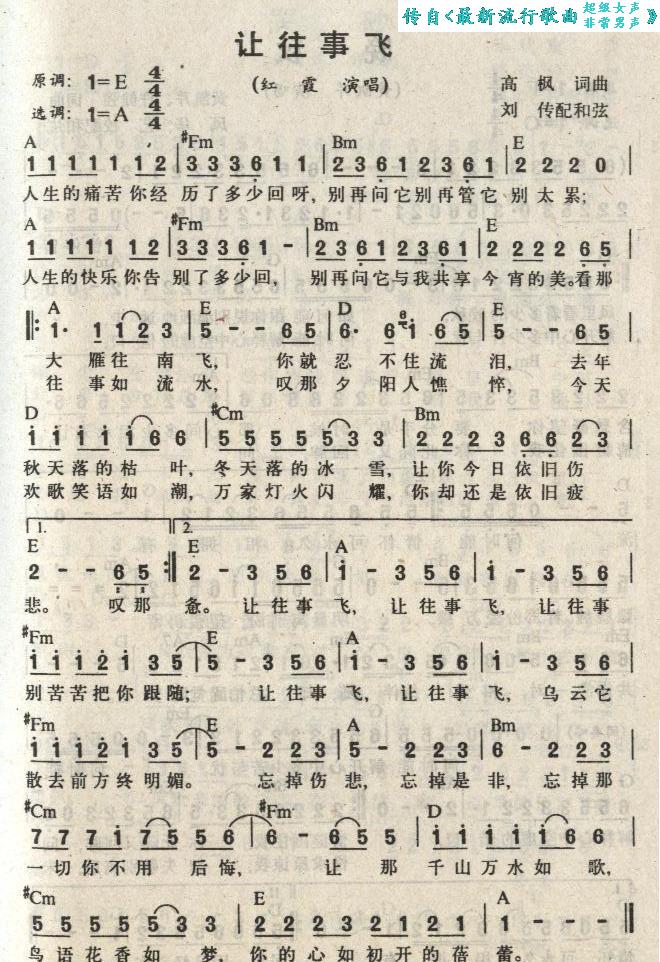 传自《最新流行歌曲 超级女声 非常男声》
让往事飞
原调：1=E 4/4 （红霞 演唱） 高枫 词曲
选调：1=A 4/4 刘传配和弦
A #Fm Bm E
1 1 1 1 1 1 2 | 3 3 3 6 1 1 | 2 3 6 1 2 3 6 1 | 2 2 2 0 |
人生的痛苦你经 历了多少回呀，别再问它别再管它 别太累；
A #Fm Bm E
1 1 1 1 1 1 2 | 3 3 3 6 1 - | 2 3 6 1 2 3 6 1 | 2 2 2 2 6 5 |
人生的快乐你告 别了多少回， 别再问它与我共享 今宵的美。看那
A E D E
‖: 1· 1 1 2 3 | 5 - - 6 5 | 6· 6 1 6 5 | 5 - - 6 5 |
大雁往南飞， 你就忍不住流泪， 去年
往事如流水， 叹那夕阳人憔悴， 今天
D #Cm Bm
i i i i i 6 6 | 5 5 5 5 5 3 3 | 2 2 2 3 6 6 2 3 |
秋天落的枯叶，冬天落的冰雪，让你今日依旧伤
欢歌笑语如潮，万家灯火闪耀，你却还是依旧疲
1. 2.
E E A
2 - - 6 5 :‖ 2 - 3 5 6 | i - 3 5 6 | i · i 3 5 6 |
悲。 叹那 惫。让往事飞， 让往事飞， 让往事
#Fm E A
i i i 2 i 3 5 | 5 - 3 5 6 | i - 3 5 6 | i - 3 5 6 |
别苦苦把你跟随； 让往事飞， 让往事飞， 乌云会
#Fm E A Bm
i i i 2 i 3 5 | 5 - 2 2 3 | 5 - 2 2 3 | 6 - 2 2 3 |
散去前方终明媚。 忘掉伤悲， 忘掉是非， 忘掉那
#Cm #Fm D
7 7 7 i 7 5 5 6 | 6 - 6 5 | i i i i i 6 6 |
一切你不用后悔， 让那千山万水如歌，
#Cm E A
5 5 5 5 5 3 3 | 2 2 2 3 2 1 2 1 | 1 - - - ‖
鸟语花香如梦，你的心如初开的蓓蕾。